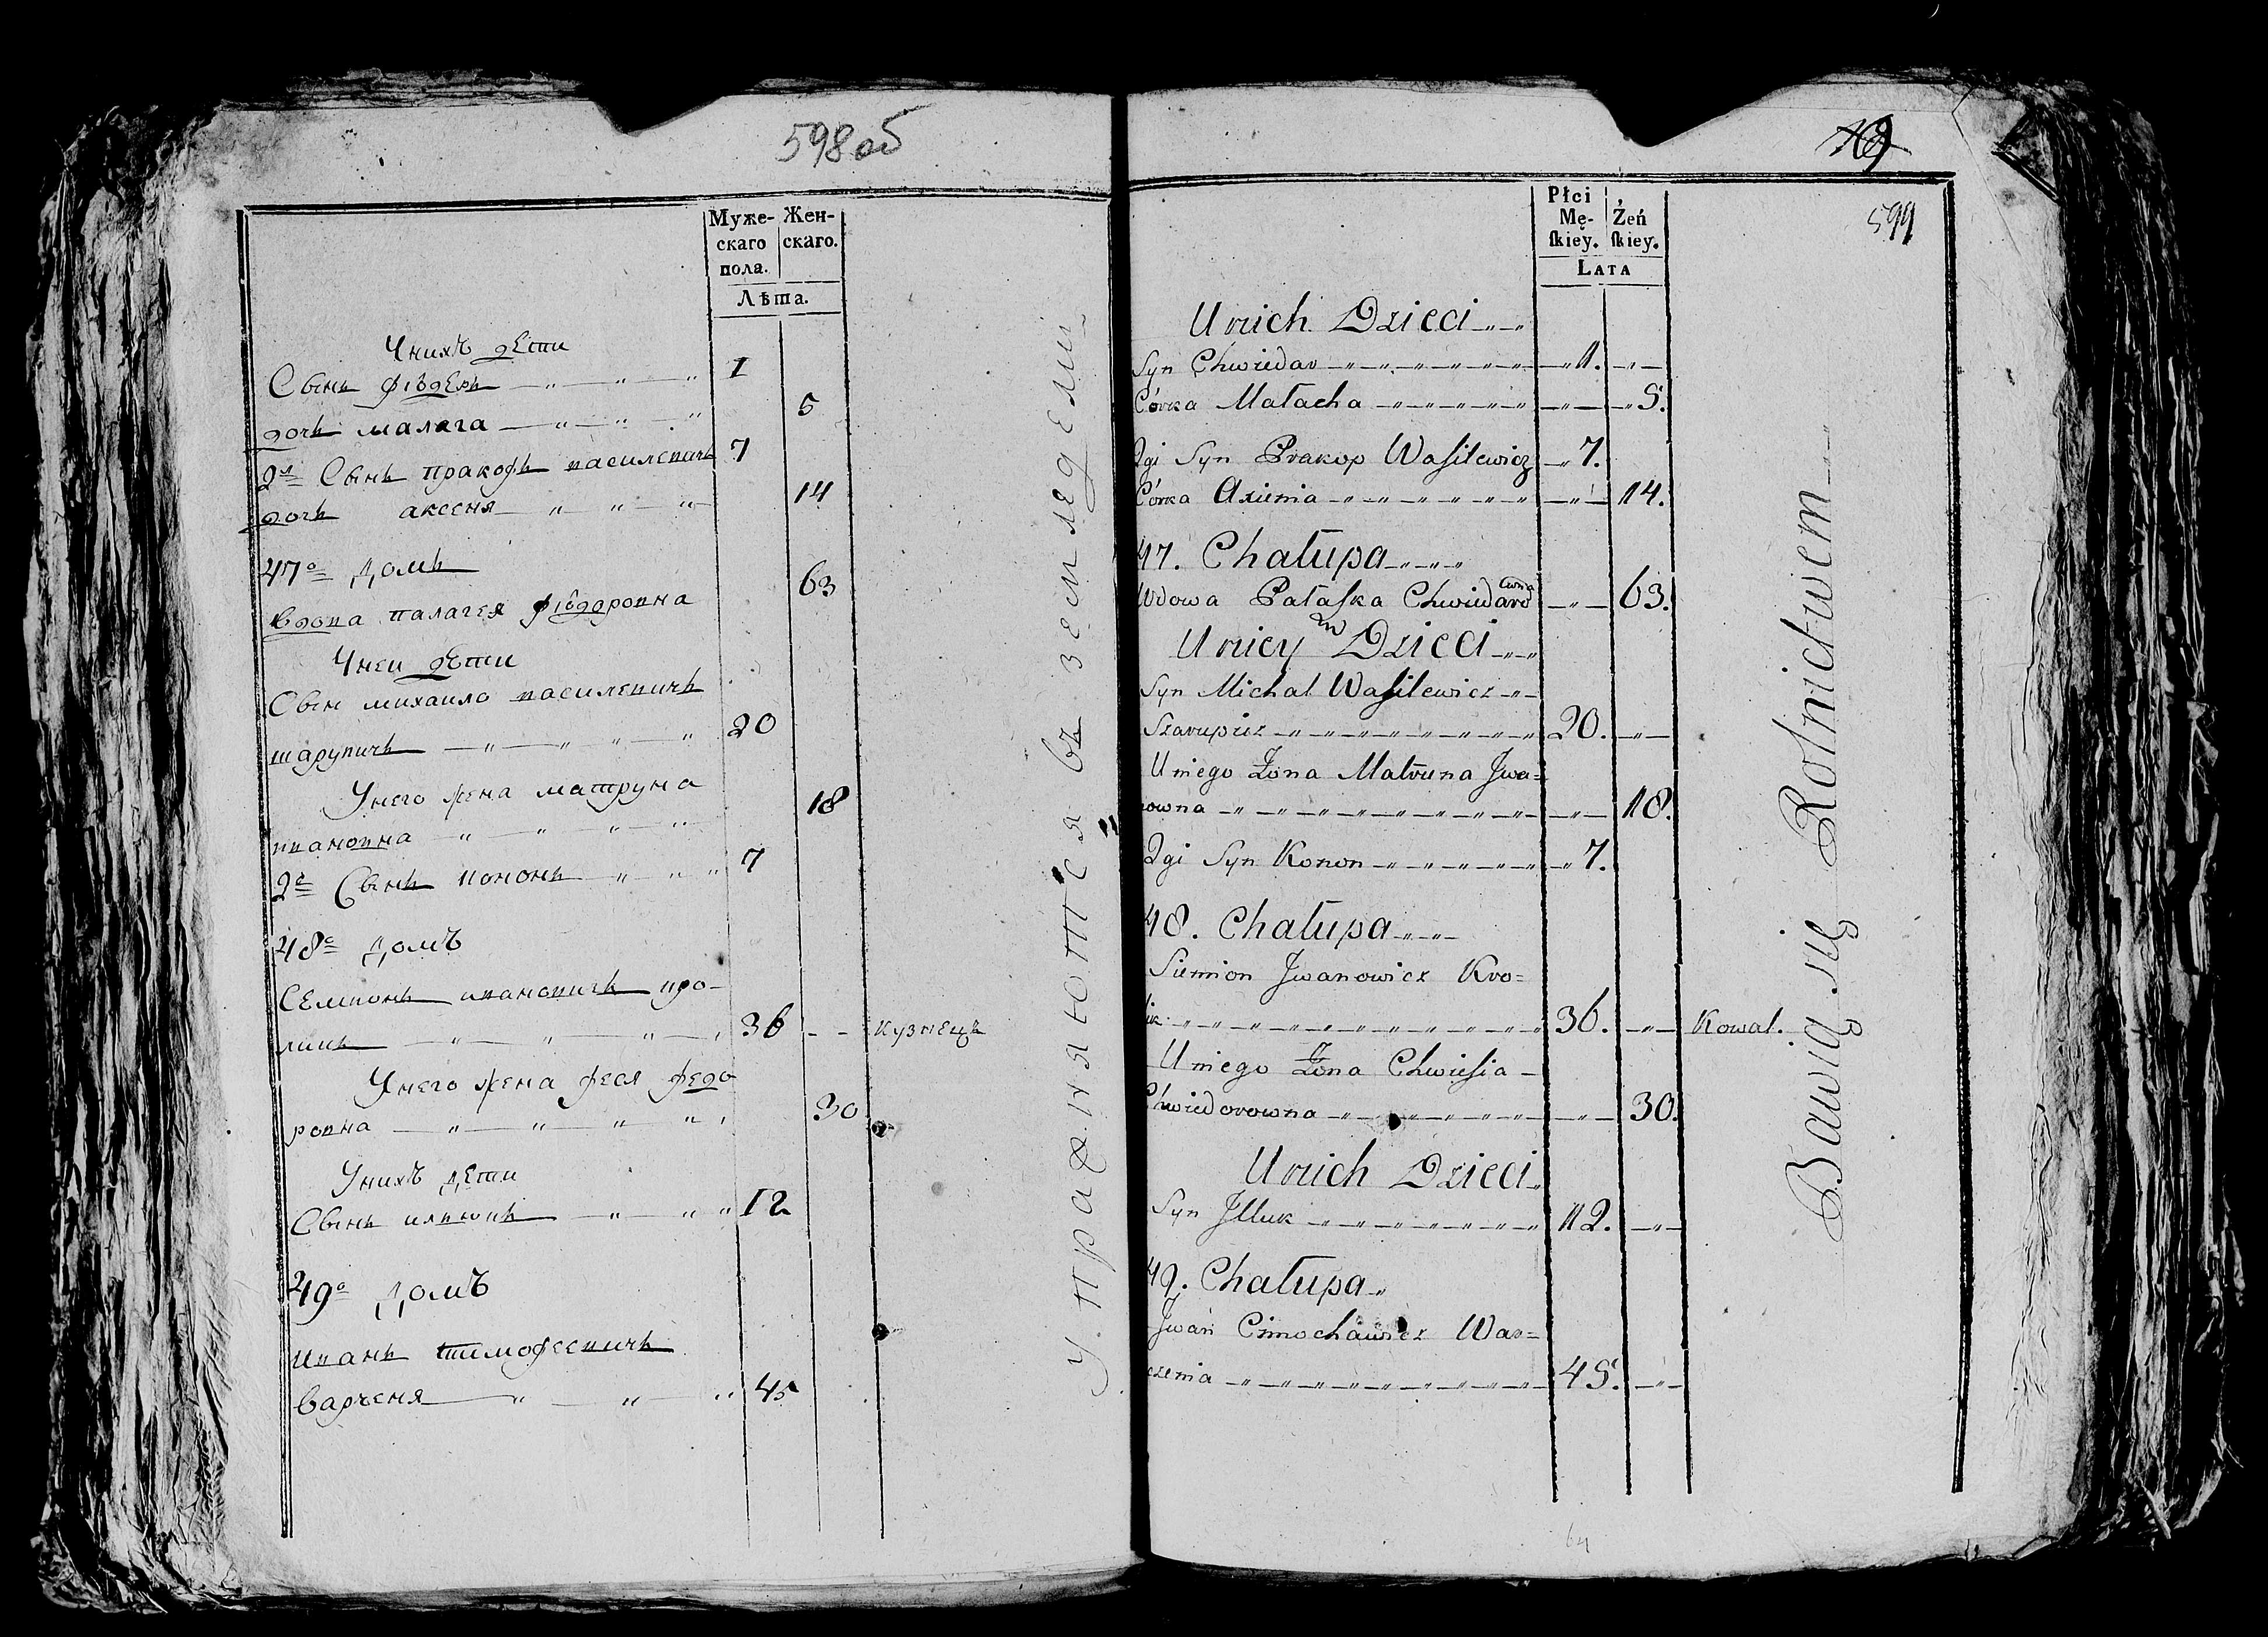 598 об
Муже-
скаго
пола.
Жен-
скаго.
Лѣта.
Унихъ дети
Сынъ фіѣдеръ 1
дочъ малага 5
2й Сынъ пракофъ василевичъ 7
дочъ аксеня 14
47е домъ
Вдова палагея фіѣдоровна 63
Унеи дети
Сын михаило василевичъ
шарупичъ 20
Унего жена матруна
ивановна 18
2й Сынъ кононъ 7
48е домъ
Семионъ ивановичъ кро-
ликъ 36 кузнецъ
Унего жена феся федо
ровна 30
Унихъ дети
Сынъ илиюкъ 12
49е домъ
иванъ тимофеевичъ
варченя 45
упражняются въ земледели
599
Płci
Mę-
skiey.
Żeń
skiey.
Lata
U nich Dzieci
Syn Chwiedar 1.
Córka Małacha 5.
2gi Syn Prakop Wasilewicz 7.
Córka Axienia 14.
47. Chałupa
Wdowa Pałaska Chwiedaro 63.
wna
U niey Dzieci
Syn Michał Wasilewicz
Szarupicz 20.
U niego Żona Matruna Jwa=
nowna 18.
2gi Syn Konon 7.
48. Chałupa
Siemion Jwanowicz Kro=
lik 36. Kowal.
U niego Żona Chwiesia
Chwiedorowna 30.
U nich Dzieci
Syn Jlluk 12.
49. Chałupa
Jwan Cimochawicz War=
czenia 45.
Bawią się Rolnictwem
64